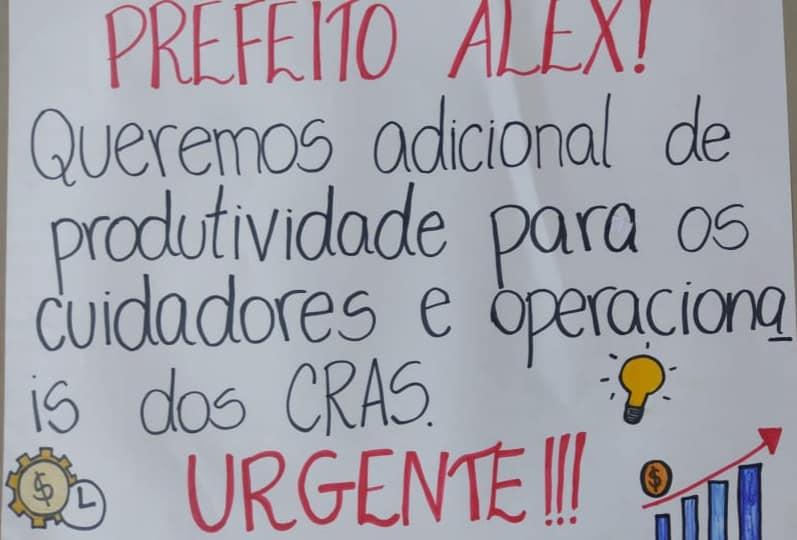 PREFEITO ALEX!
Queremos adicional de
produtividade para os
cuidadores e operaciona
is dos CRAS.
URGENTE!!!
$
$